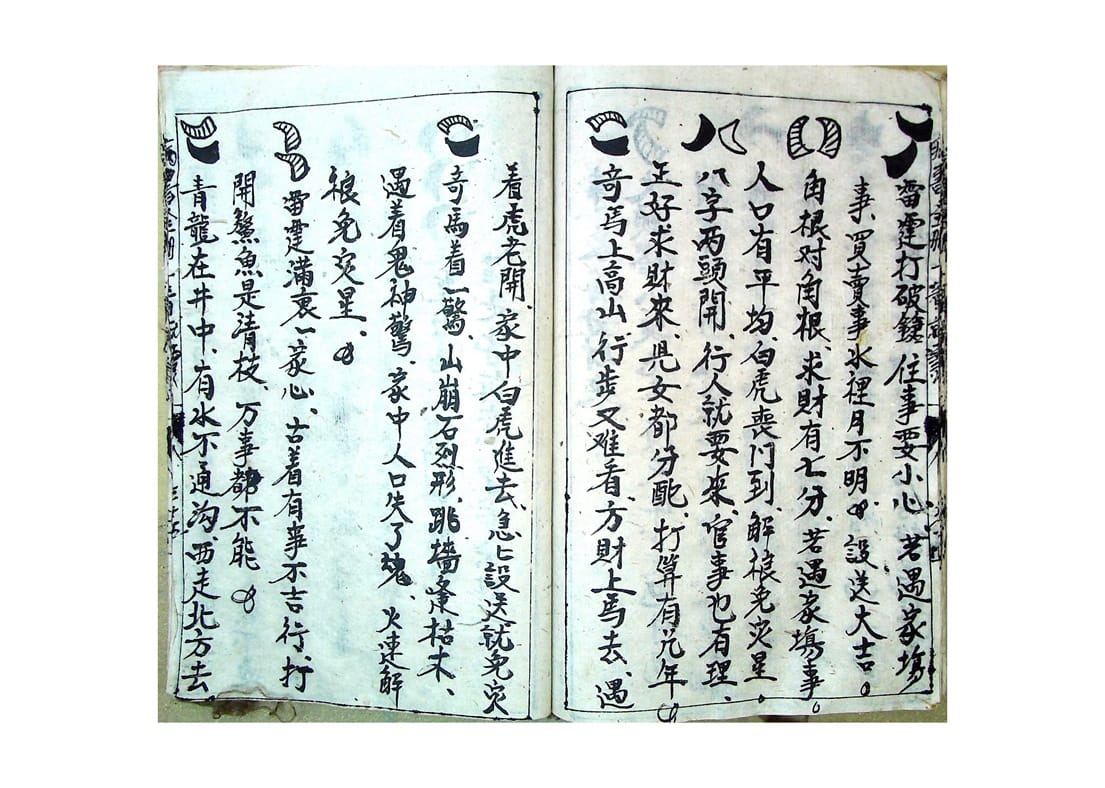 雷霆打破鐘住事要小心若遇家塲
事、買賣事水裡月不明。設送大吉。
角根对角根、求財有七分、若遇家塲事。
人口有平均、白虎喪门到、解根免灾星。
八字两頭開、行人就要來、官事也有理、
正好求財來、児女都分配、打算有几年
奇馬上高山、行步又难看、方財上馬去、遇
着虎老開、家中白虎進去、急急設送就免灾
奇馬着一驚、山崩石烈形、跳墻逢枯木、
遇着鬼神驚、家中人口失了魂、火速解
根免灾星、
雷霆滿裏一家心、古着有事不吉行、打
開鰲魚是清枝、万事都不能
青龍在井中、有水不通沟、西走北方去